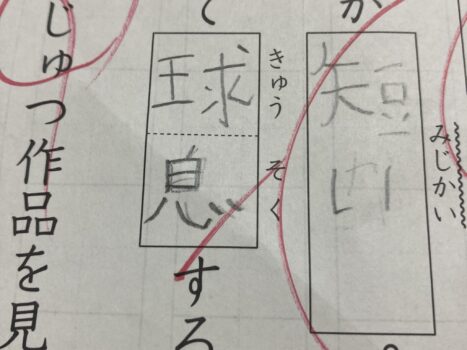 みじかい
短い
きゅう そく
球息
する
じゅつ作品を見